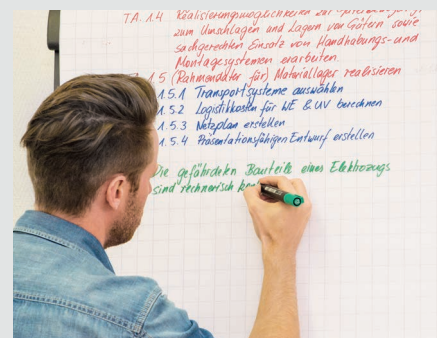 TA. 1.4 Realisierungsmöglichkeiten zur
zum Umschlagen und Lagern von Gütern sowie
sachgerechten Einsatz von Handhabungs- und
Montagesystemen erarbeiten
1.5 (Rahmendaten für) Materiallager realisieren
1.5.1 Transportsysteme auswählen
1.5.2 Logistikkosten für WE & UV berechnen
1.5.3 Netzplan erstellen
1.5.4 Präsentationsfähigen Entwurf erstellen
Die gefährdeten Bauteile eines Elektrozugs
sind rechnerisch